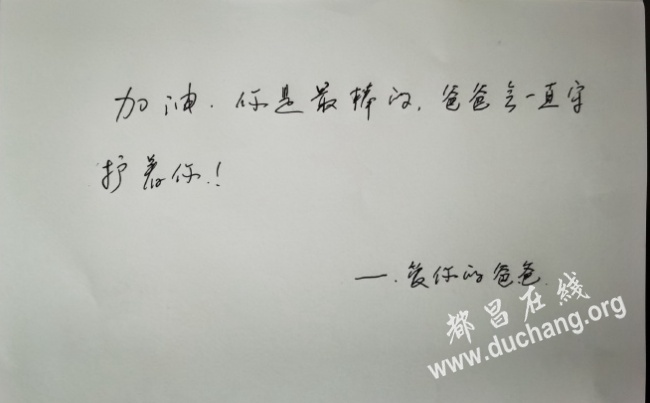 加油.你是最棒的,爸爸会一直守
护着你!
—.爱你的爸爸.
都昌在线
www.duchang.org